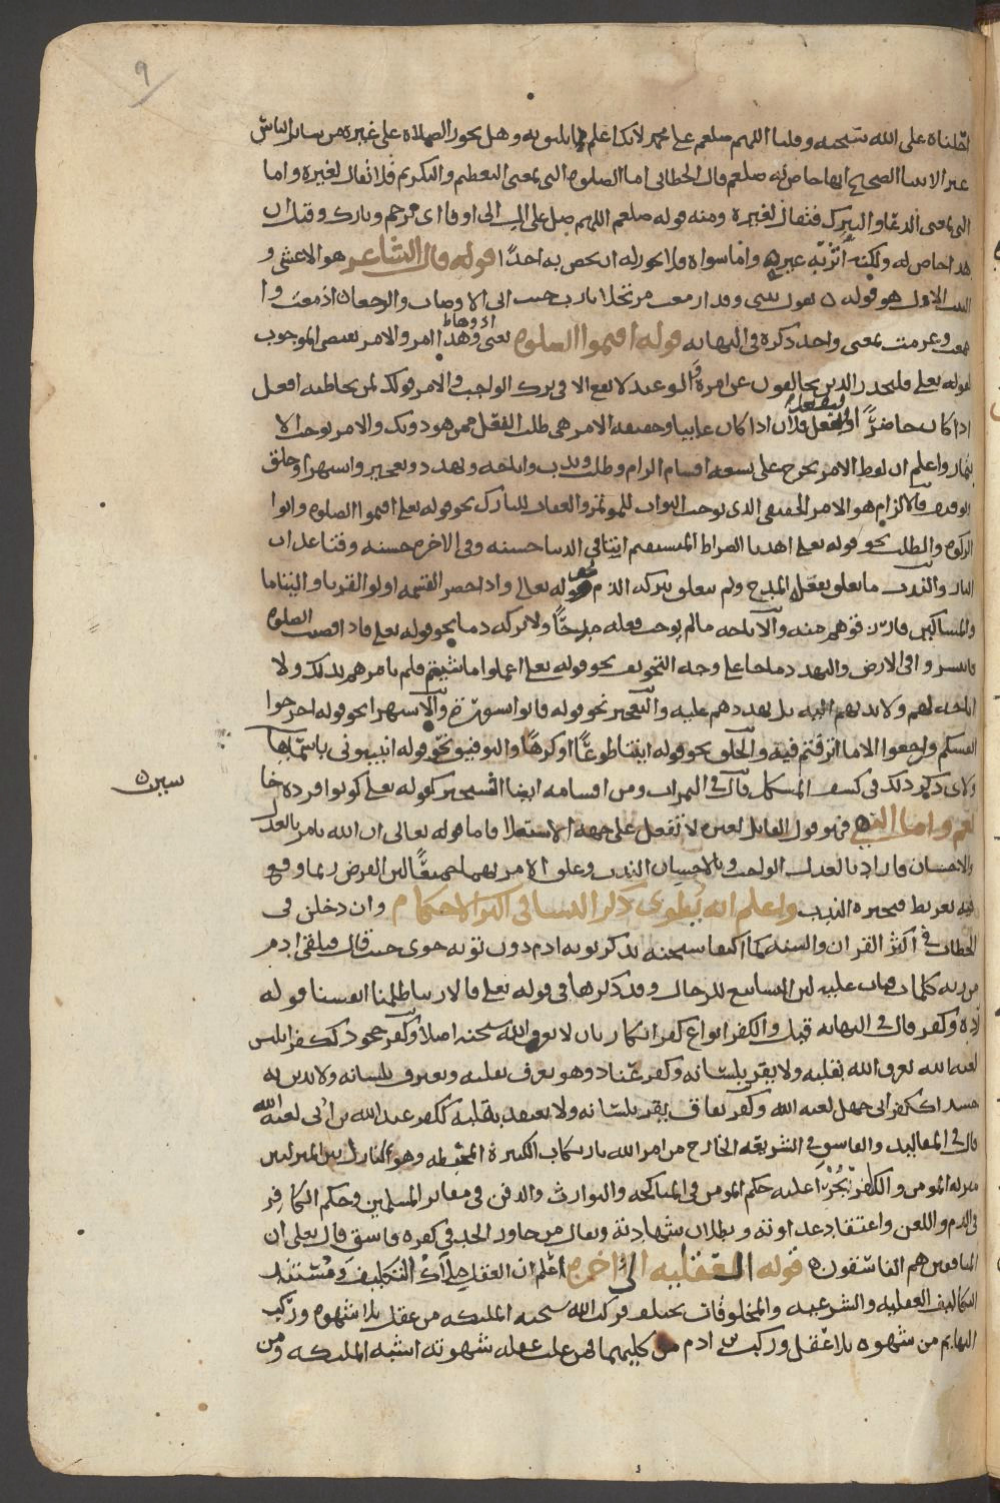 ٩
احلناه على الله سبحنه وقلنا اللهم صلعم على محمد لانك اعلم بما يليق به وهل يجوز الصلاه على غيره من سائر الناس
غير الانبيا الصحيح انها خاص به صلعم قال الخطابي اما الصلوه التي بمعنى التعظيم والتكريم فلا تقال لغيره واما
التي بمعنى الدعا والتبرك فتقال لغيره ومنه قوله صلعم اللهم صل على ال ابي اوفا اي ترحم وبارك وقيل ان
هذا خاص له ولكنه اثر به غيره واما سواه فلا يجوز له ان يخص به احدا قوله قال الشاعر هو الاعشى و
البيت الاول هو قوله تقول بنتي وقد مرتحلا يارب جنب ابي الاوصاب والوجعا
وعزمت بمعنى واحد ذكره في النهايه قوله اقيموا الصلوه يعني وهذا امر والامر يقتضي الوجوب
لقوله تعلى فليحذر الذين يخالفون عن امره والوعيد لا يقع الا في ترك الواجب والامر قولك لمن تخاطبه افعل
اذا كان حاضرًا او ليفعل فلان اذا كان غايبا وحقيقه الامر هي طلب الفعل ممن هو دونك والامر يوجب الا
يتمار واعلم ان لفظ الامر يخرج على تسعه اقسام الزام وطلب وندب واباحه وتهدد وتعجيز واستهزا وخلق
وتوفيق فالالزام هو الامر الحقيقي الذي يوجب الثواب للمؤتمر والعقاب للتارك نحو قوله تعلى اقيموا الصلوه واتوا
الزكوه والطلب نحو قوله تعلى اهدنا الصراط المستقيم اتنا في الدنيا حسنه وفي الاخره حسنه وقنا عذاب
النار والندب ما تعلق بفعله المدح ولم يتعلق بتركه الذم نحو قوله تعالى واذا حضر القسمه اولوا القربا واليتاما
والمساكين فارزقوهم منه والاباحه ما لم يوجب فعله مدحًا ولا تركه ذما نحو قوله تعلى فاذا قضيت الصلوه
فانتشروا في الارض والتهدد ما جا على وجه التخويف نحو قوله تعلى اعملوا ما شيتم فلم يامرهم بذلك ولا
اباحه لهم ولا ندبهم اليه بل تهددهم عليه والتعجيز نحو قوله فاتوا بسورة والاستهزا نحو قوله اخرجوا
انفسكم وارجعوا الى ما اترفتم فيه والخلق نحو قوله ايتيا طوعًا او كرهًا والتوفيق نحو قوله انبيوني باسما
ذكر ذلك في كشف المشكل قال في الثمرات ومن اقسامه ايضا التسخير كقوله تعلى كونوا قرده خا
سيين
نعم واما النهي فهو قول القايل لغيره لا تفعل على جهه الاستعلا فاما قوله تعالى ان الله يامر بالعدل
والاحسان فاراد بالعدل الواجب وبالاحسان الندب وعلق الامر بهما جميعًا لان الفرض ربما وقع
فيه تفريط فيجبره الندب واعلم انه يطوى ذكر النسا في اكثر الاحكام وان دخلن في
الخطاب في اكثر القران والسنه كما اكتفا سبحنه بذكر توبه ادم دون توبه حوى حيث قال فتلقى ادم
من ربه كلمات فتاب عليه لان النسا تبع للرجال وقد ذكرها في قوله تعلى قالا ربنا ظلمنا انفسنا قوله
وكفر قال في النهايه قيل والكفر انواع كفر انكار بان لا يعرف الله سبحنه اصلا وكفر جحود ككفر ابليس
لعنه الله يعرف الله بقلبه ولا يقر بلسانه وكفر عناد وهو يعرف بقلبه ويعترف بلسانه ولا يدين به
حسدا ككفر ابي جهل لعنه الله وكفر نفاق يقر بلسانه ولا يعتقد بقلبه ككفر عبد الله بن ابي لعنه الله
قال في المقاليد والفاسق في الشريعه الخارج من امر الله بارتكاب الكبيرة المحبطه وهو النازل بين المنزلتين
منزله المومن والكافر اعليه حكم المومن في المناكحه والتوارث والدفن في مقابر المسلمين وحكم الكافر
في الذم واللعن واعتقاد عداوته وبطلان شهادته ويقال من جاوز الحد في كفره فاسق قال تعلى ان
المنافقين هم الفاسقون قوله العقليه الى اخره اعلم ان العقل التكليف ومستند
التكاليف العقليه والشرعيه والمخلوقات تختلف فركب الله سبحنه المليكه من عقل بلا شهوه وركب
البهايم من شهوه بلا عقل وركب بني ادم من كليهما فمن غلب عقله شهوته اشبه المليكه ومن